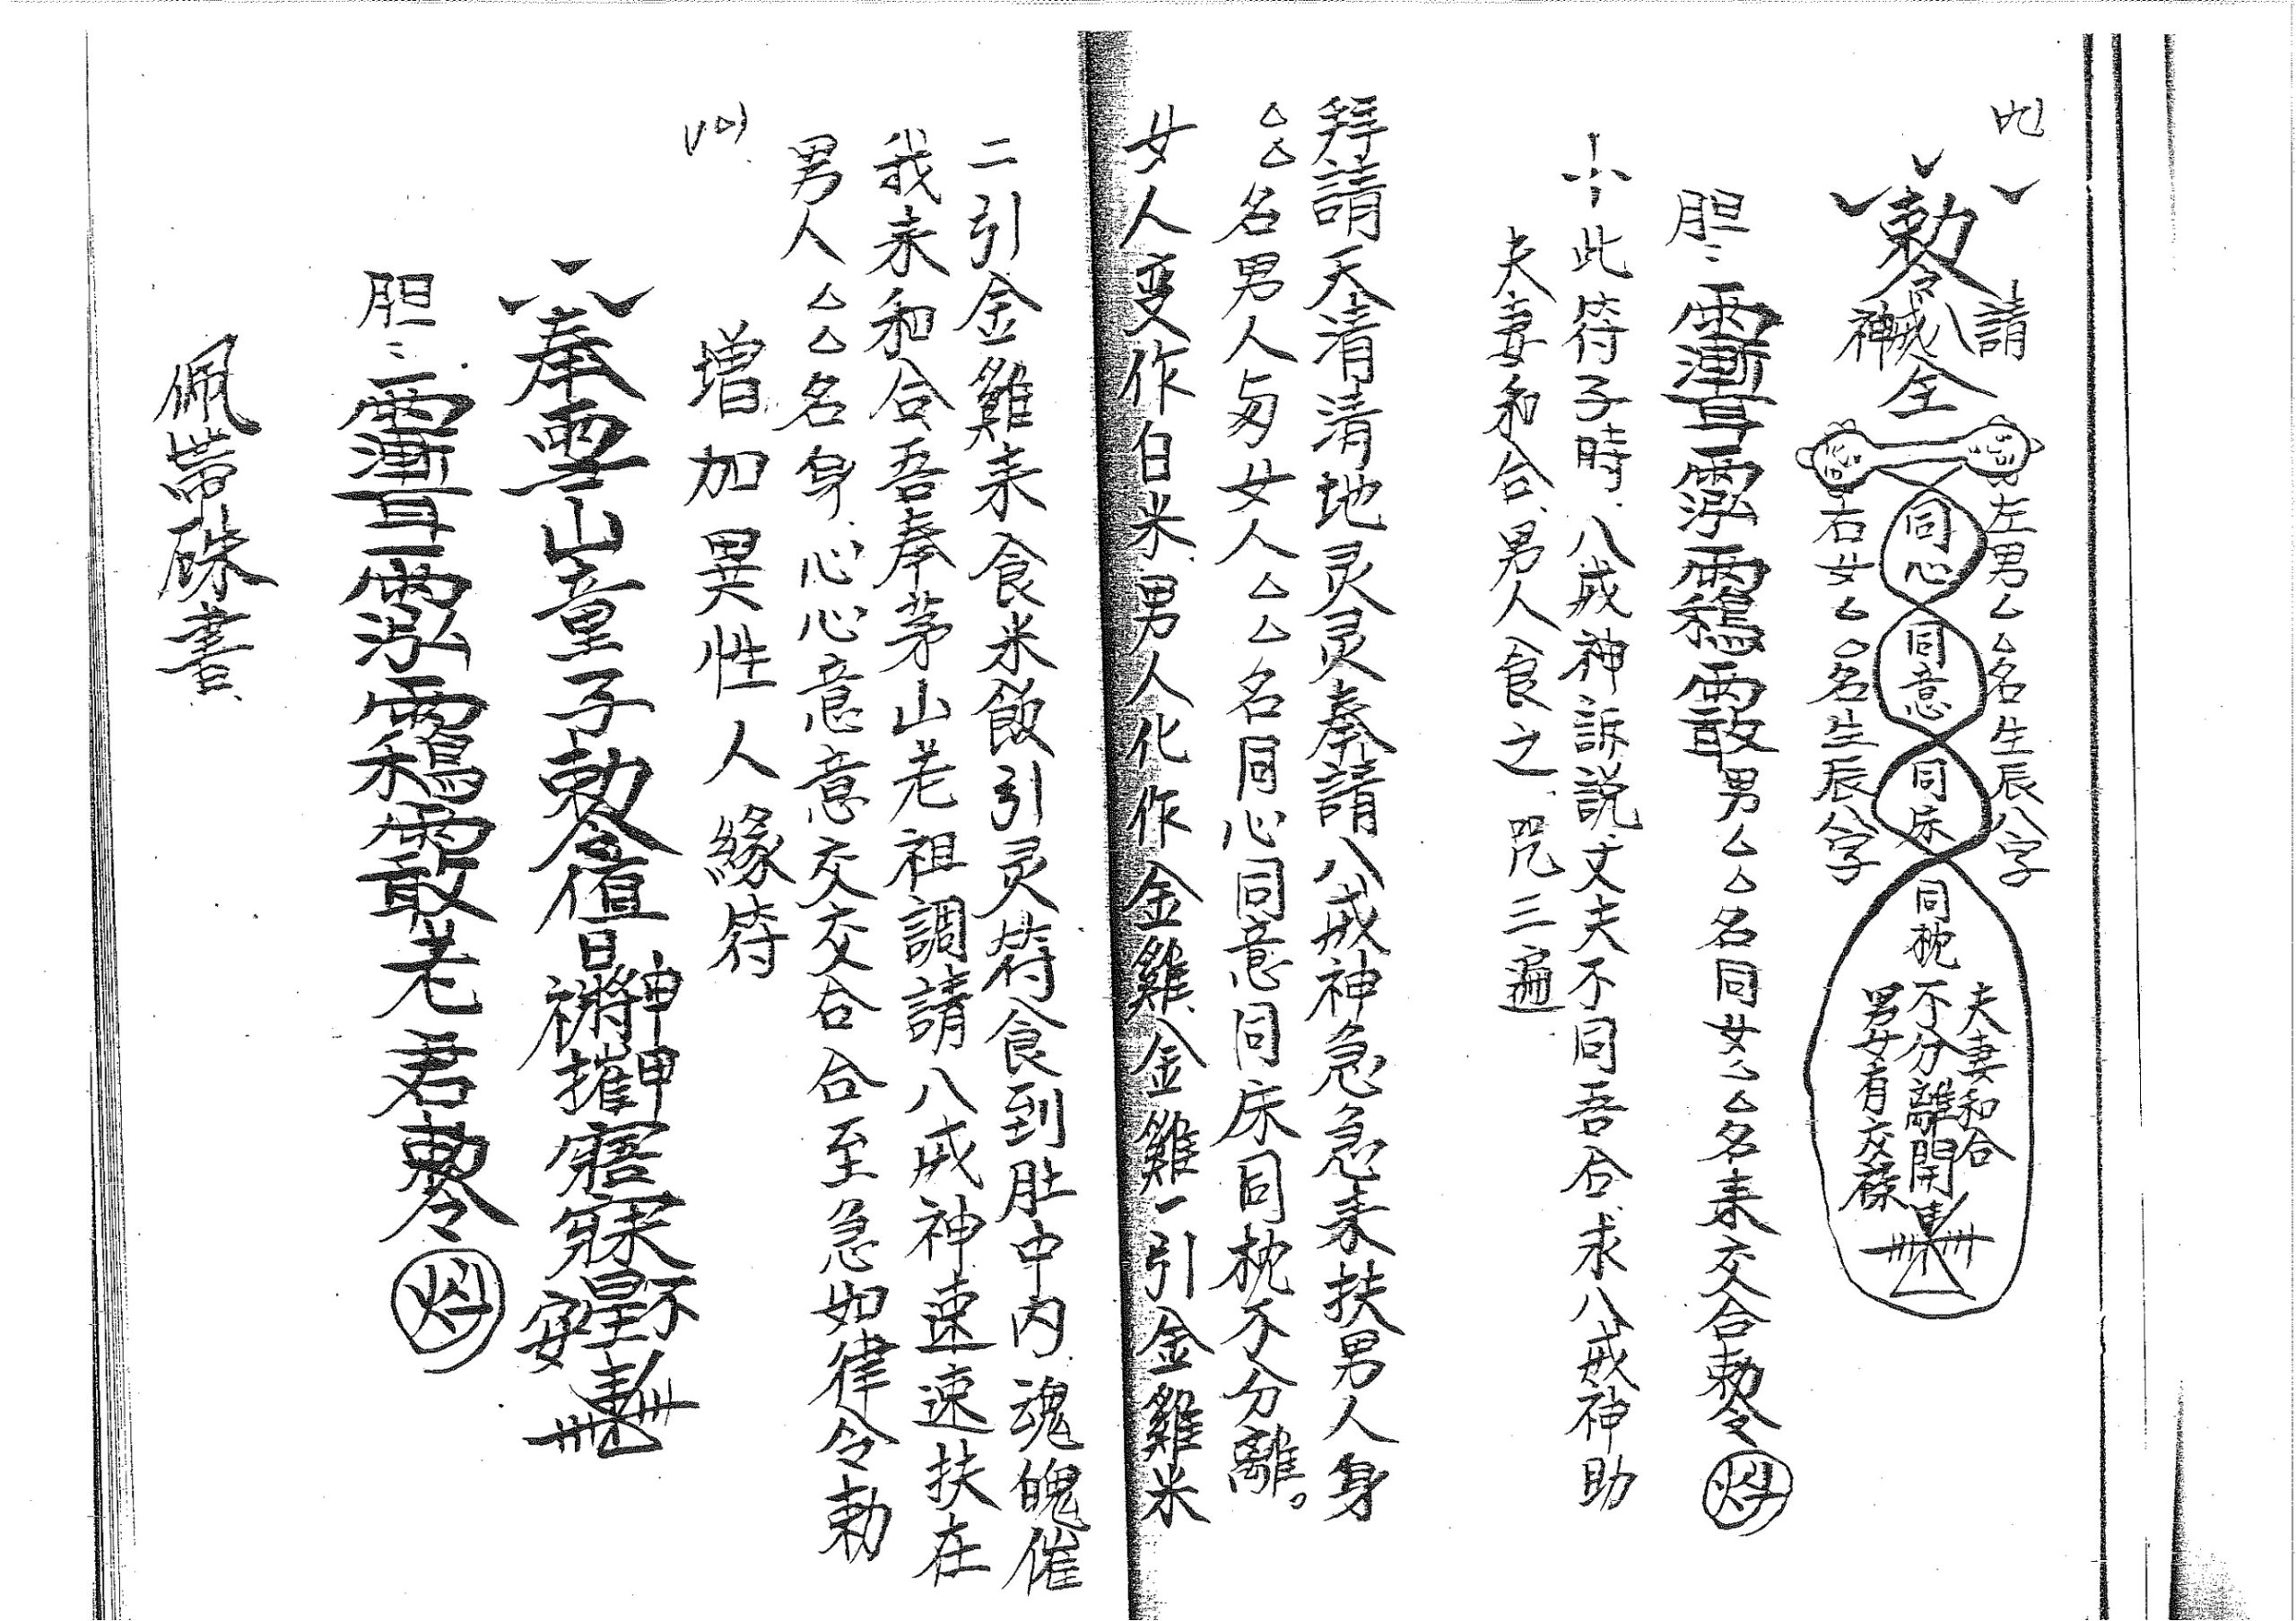 請
勅令八戒神
全
左男厶厶名生辰八字
同心
同意
同床
同枕不分離開
夫妻和合
男女有交
右女厶厶名生辰八字
胆
男厶厶名同女厶厶名来交合勅令
此符子時、八戒神訴説丈夫不同吾合、求八戒神助
夫妻和合、男人食之、咒三遍
拜請天清清地灵灵奉請八戒神急急来扶男人身
厶厶名男人与女人厶厶名同心同意同床同枕不分離。
女人变作白米、男人化作金雞、金雞一引金雞米
二引金雞来食米飯引灵符食到肚中内魂魄催
我来和合吾奉茅山老祖調請八戒神速速扶在
男人厶厶名身、心心意意交交合合至急如律令勅
增加異性人緣符
奉雪山童子勅令值日
不安
胆
老君勅令
佩帶硃書